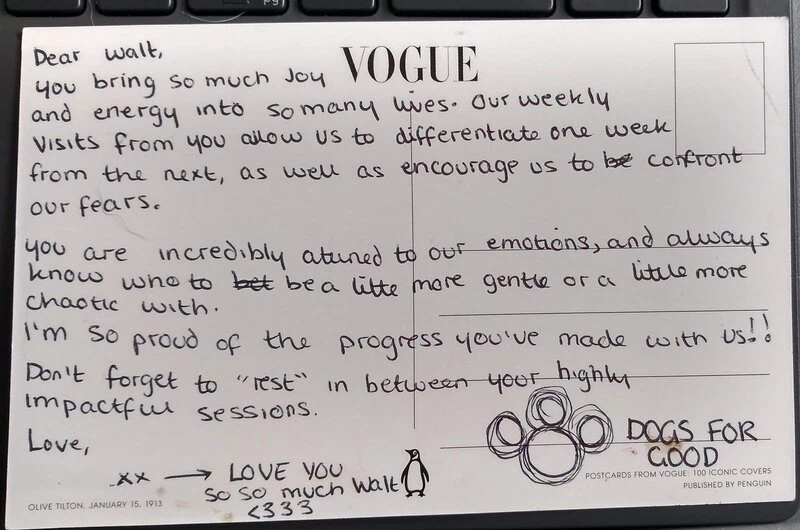 Dear Walt,
VOGUE
you bring so much Joy
and energy into so many lives. Our weekly
visits from you allow us to differentiate one week
from the next, as well as encourage us to be confront
our fears.
you are incredibly atuned to our emotions, and always
know who to bet be a little more gentle or a little more
chaotic with.
I'm so proud of the progress you've made with us!!
Don't forget to "rest" in between your highly
impactful sessions.
Love,
xx → LOVE YOU
so so much Walt
<333
DOGS FOR
GOOD
POSTCARDS FROM VOGUE: 100 ICONIC COVERS
PUBLISHED BY PENGUIN
OLIVE TILTON, JANUARY 15, 1913